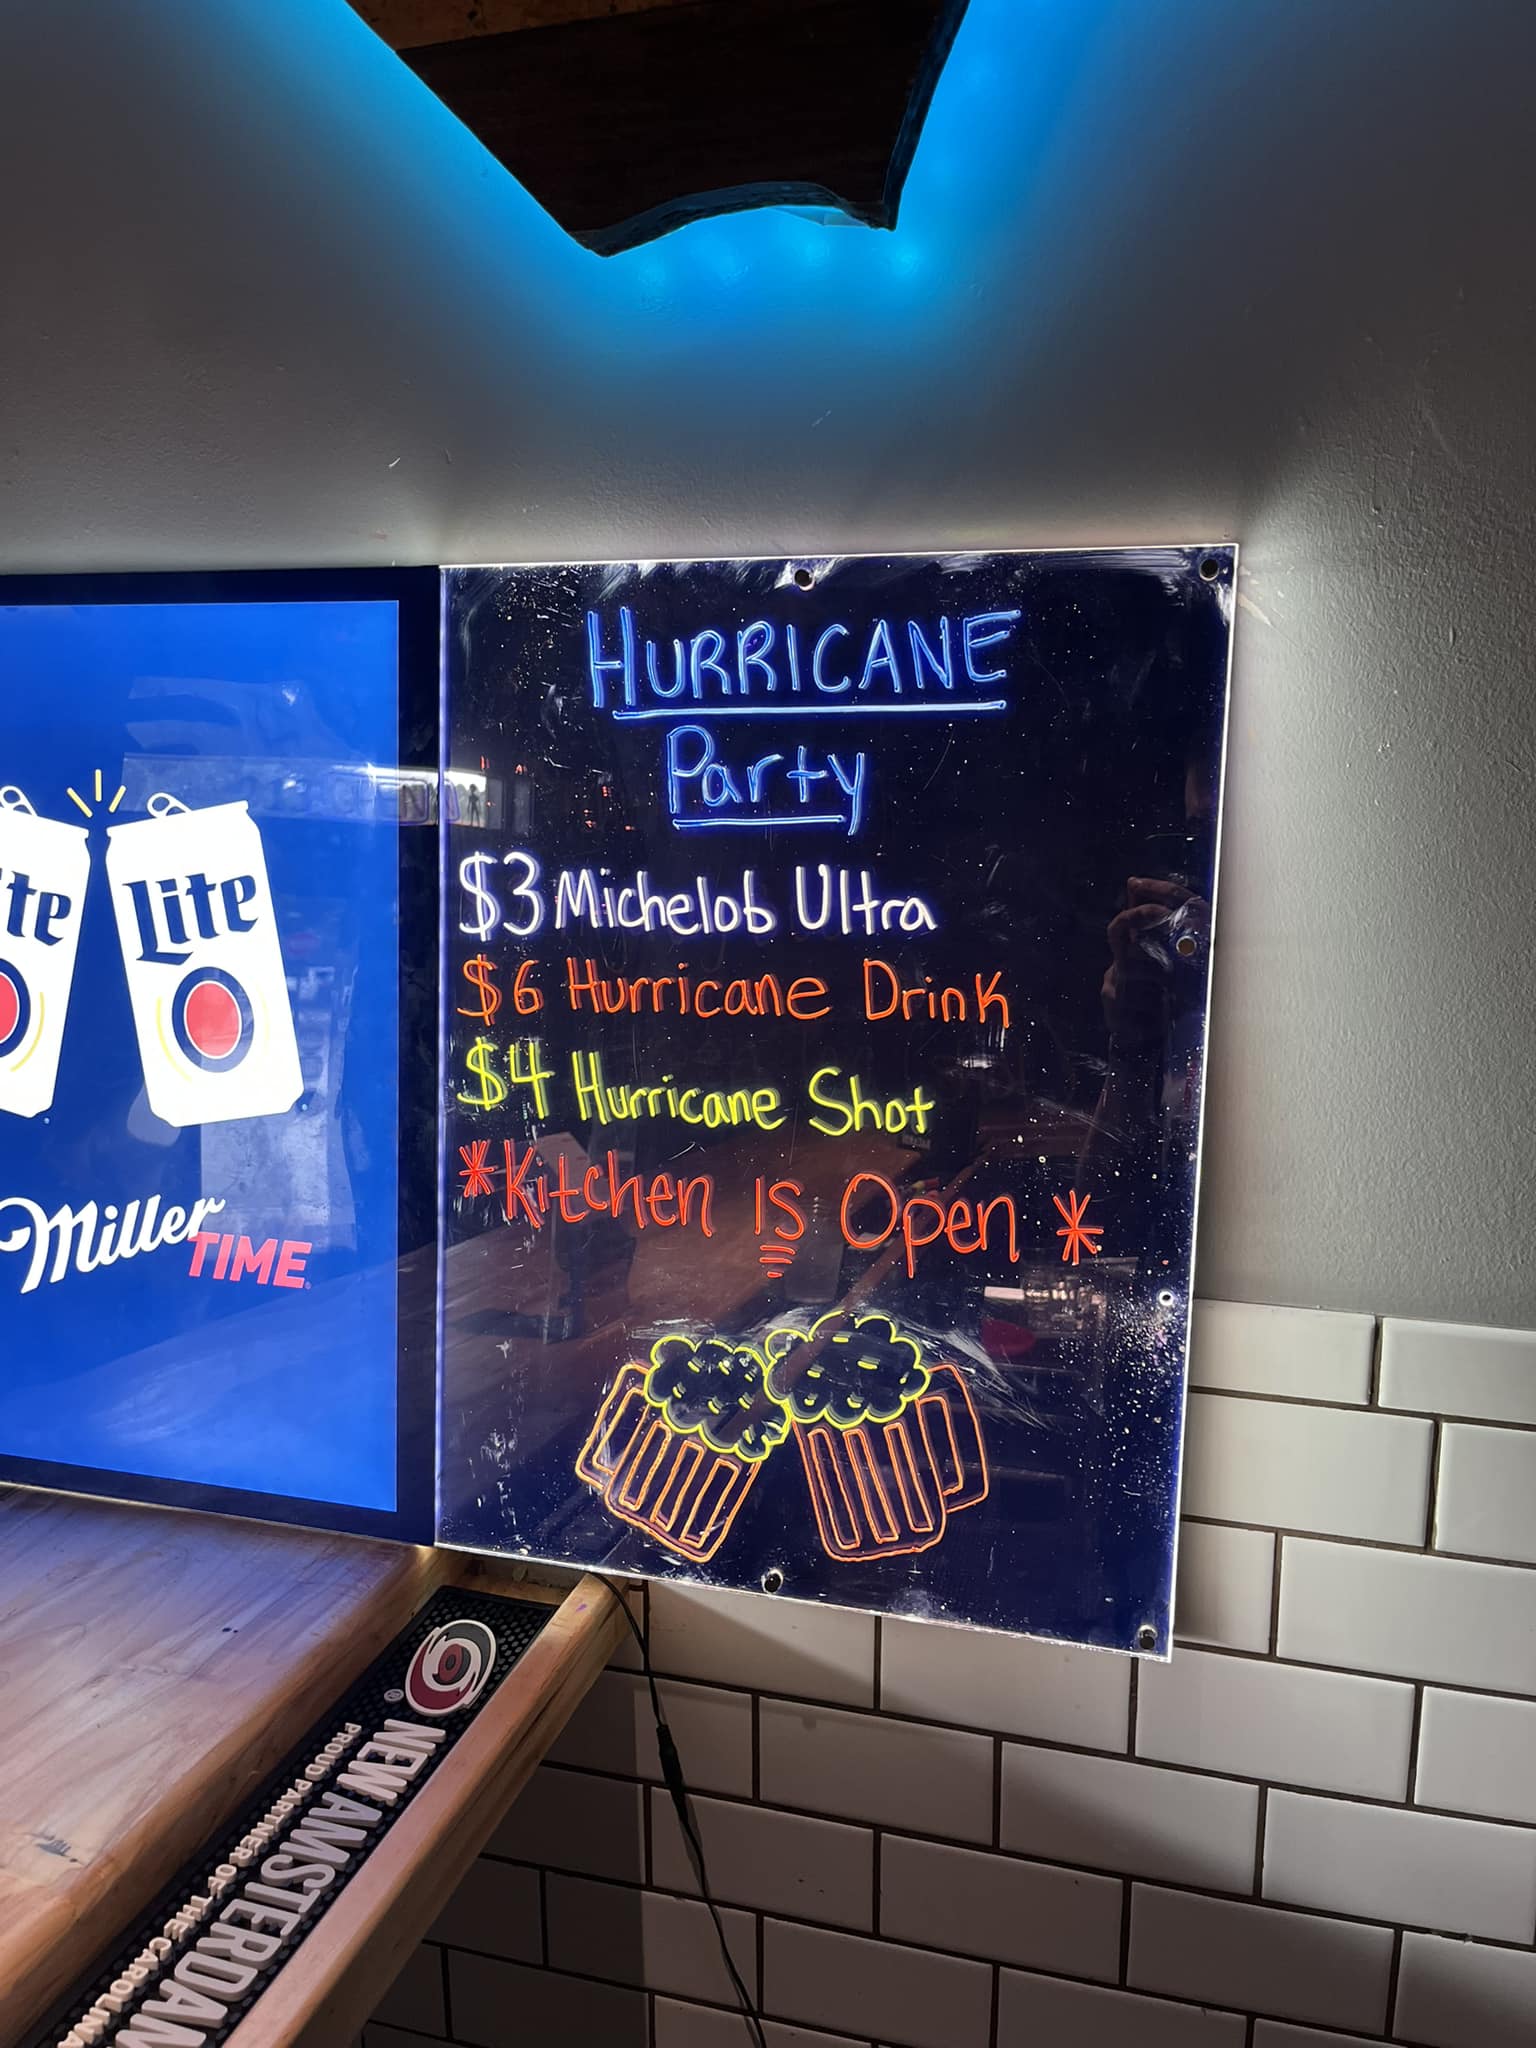 HURRICANE
Party
$3 Michelob Ultra
$6 Hurricane Drink
$4 Hurricane Shot
*Kitchen IS Open *
ite
Lite
Miller
TIME
NEW AMSTERDAM
PROUD PARTNER OF THE CAROLINA